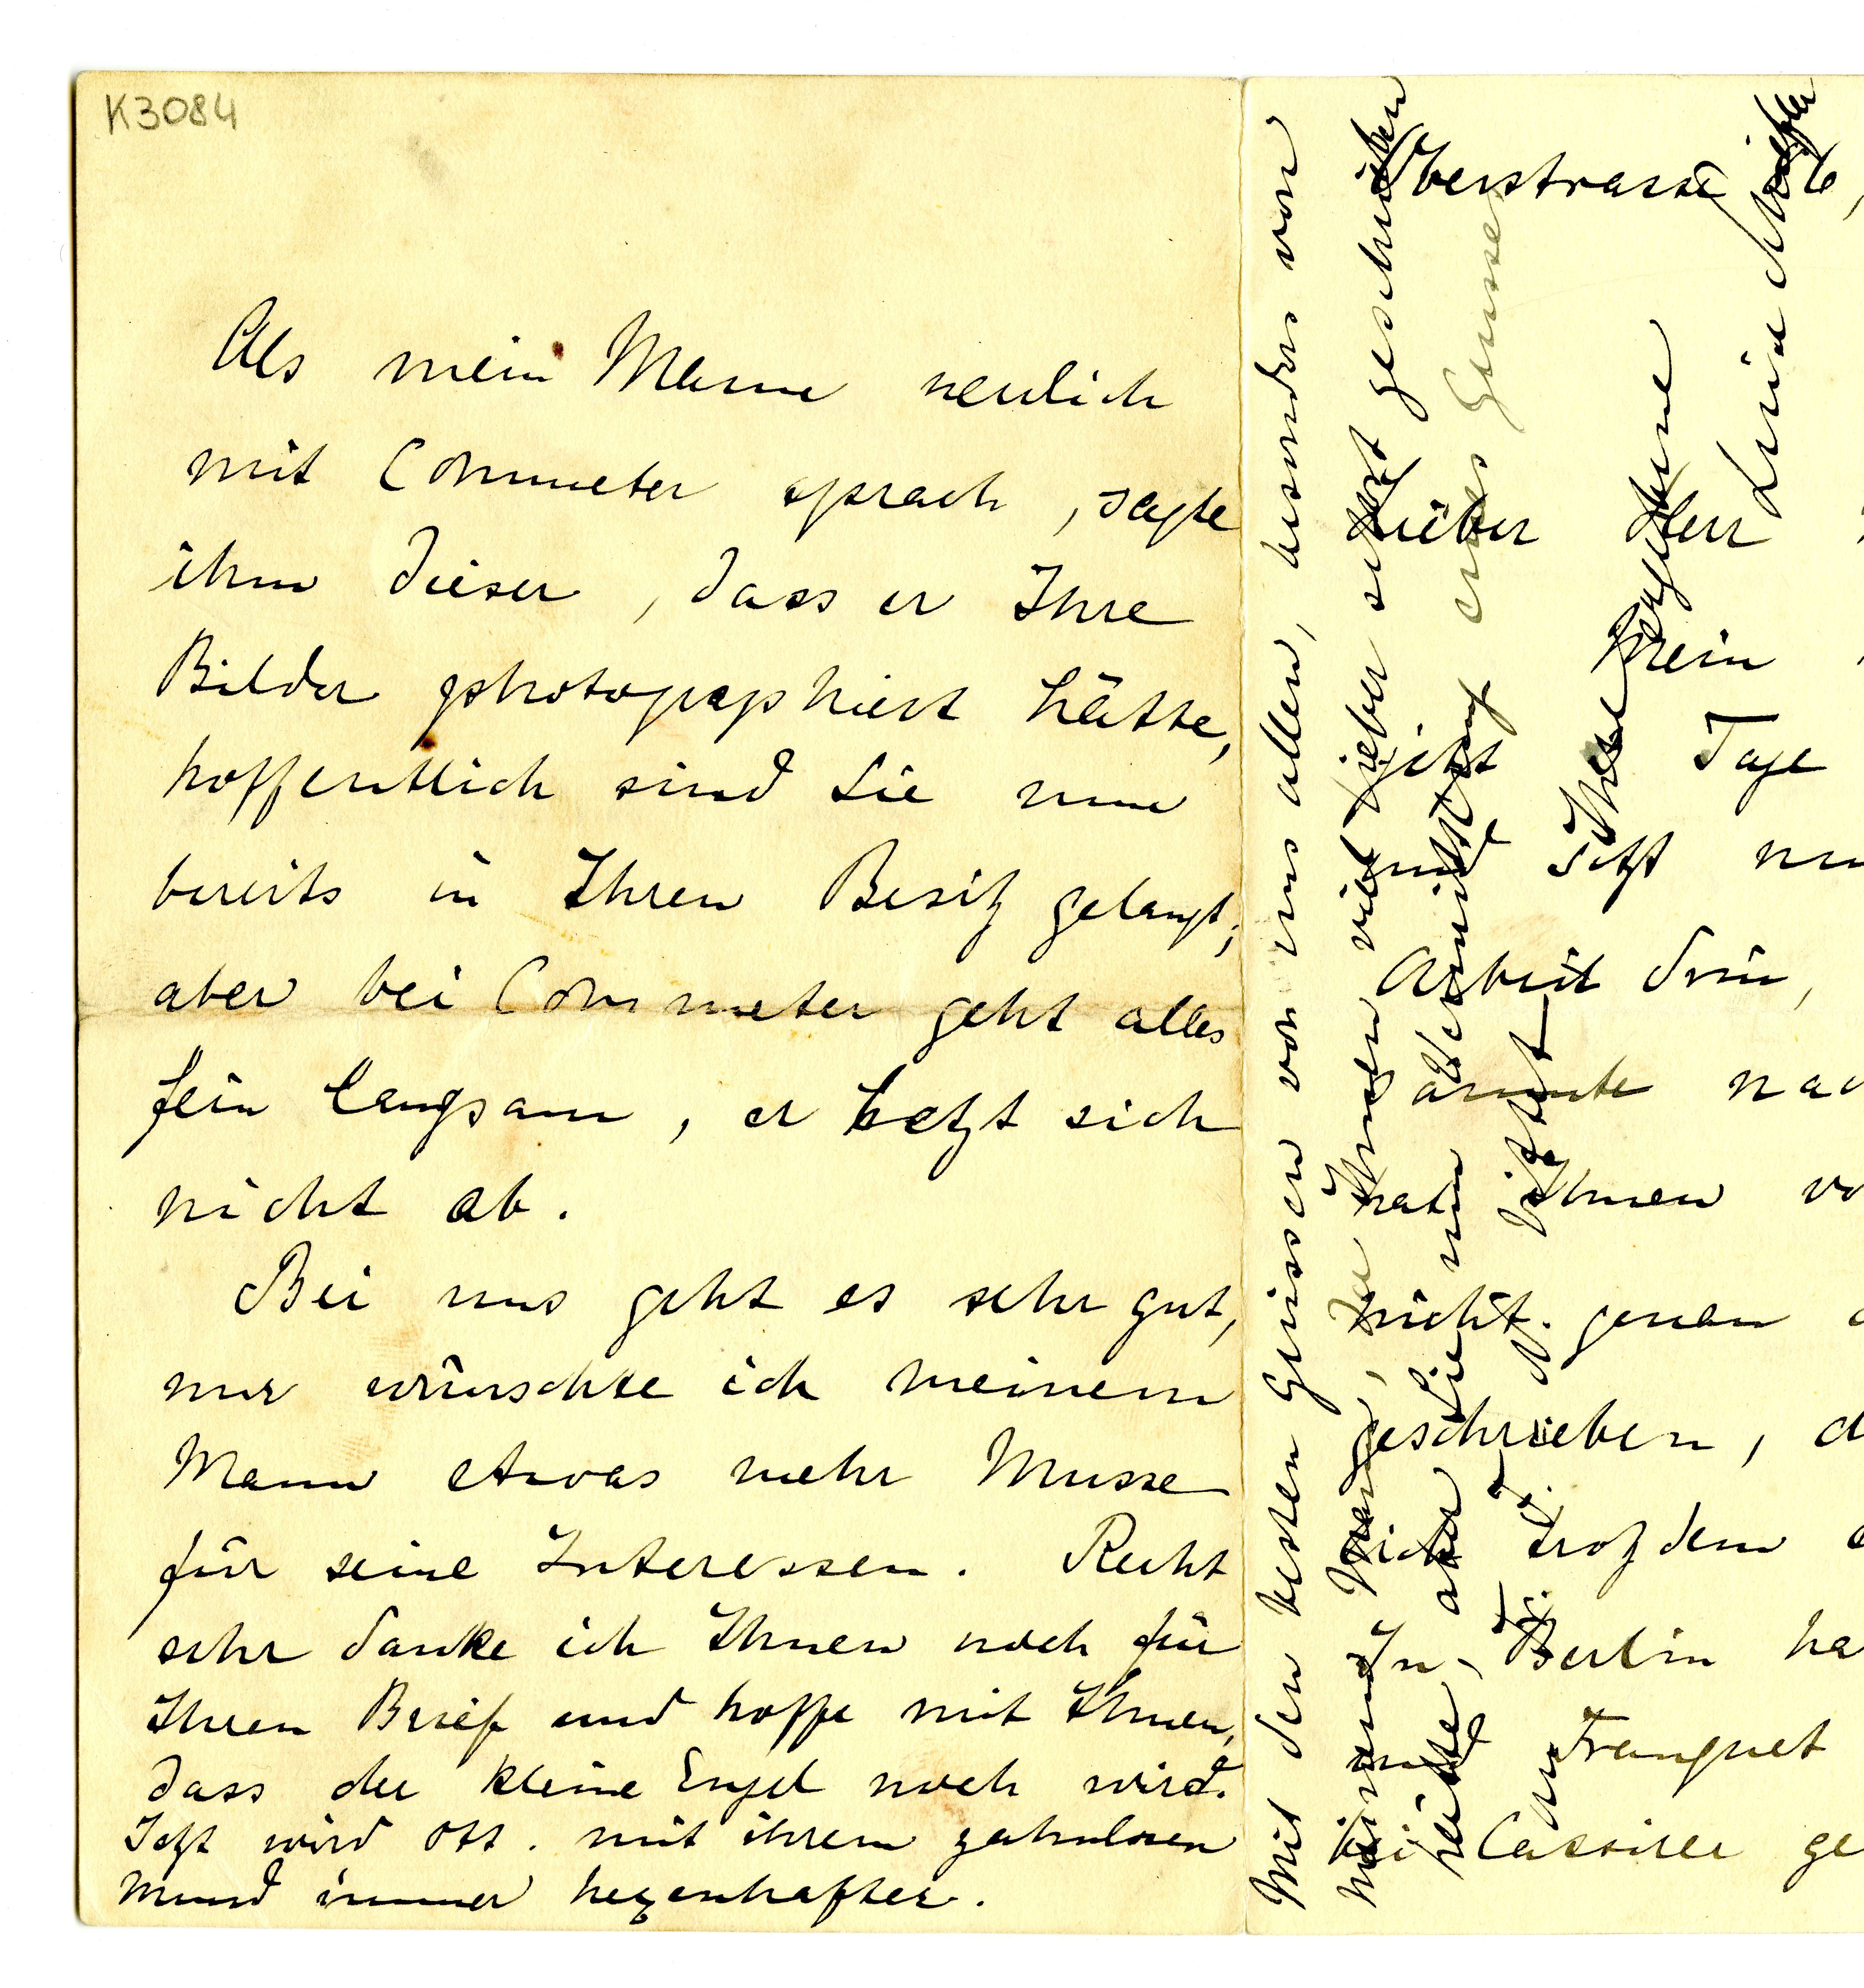 K3084
Als mein Mann neulich
mit Commeter sprach, sagte
ihm dieser, dass er Ihre
Bilder photographiert hätte,
hoffentlich sind Sie nun
bereits in Ihren Besitz gelangt;
aber bei Commeter geht alles
fein langsam, er hetzt sich
nicht ab.
Bei uns geht es sehr gut,
nur wünschte ich meinem
Mann etwas mehr Musse
für seine Interessen. Recht
sehr danke ich Ihnen noch für
Ihren Brief und hoffe mit Ihnen,
dass der kleine Engel noch wird.
Jetzt wird Ott. mit ihrem zahnlosen
Mund immer hexenhafter.
Oberstrasse
Lieber Herr
Mein
jetzt Tage
und sitzt
Arbeit drin,
konnte
hat Ihnen
nicht genau
geschrieben, d
trotzdem
In Berlin ha
Tranquet
bei Cassirer ge
Mit den besten Grüssen von uns allen, besonders von
meinem Mann, der Ihnen viel lieber selbst geschrieben
hätte, aber Sie
Ihre ergebene
Luise Schiefler